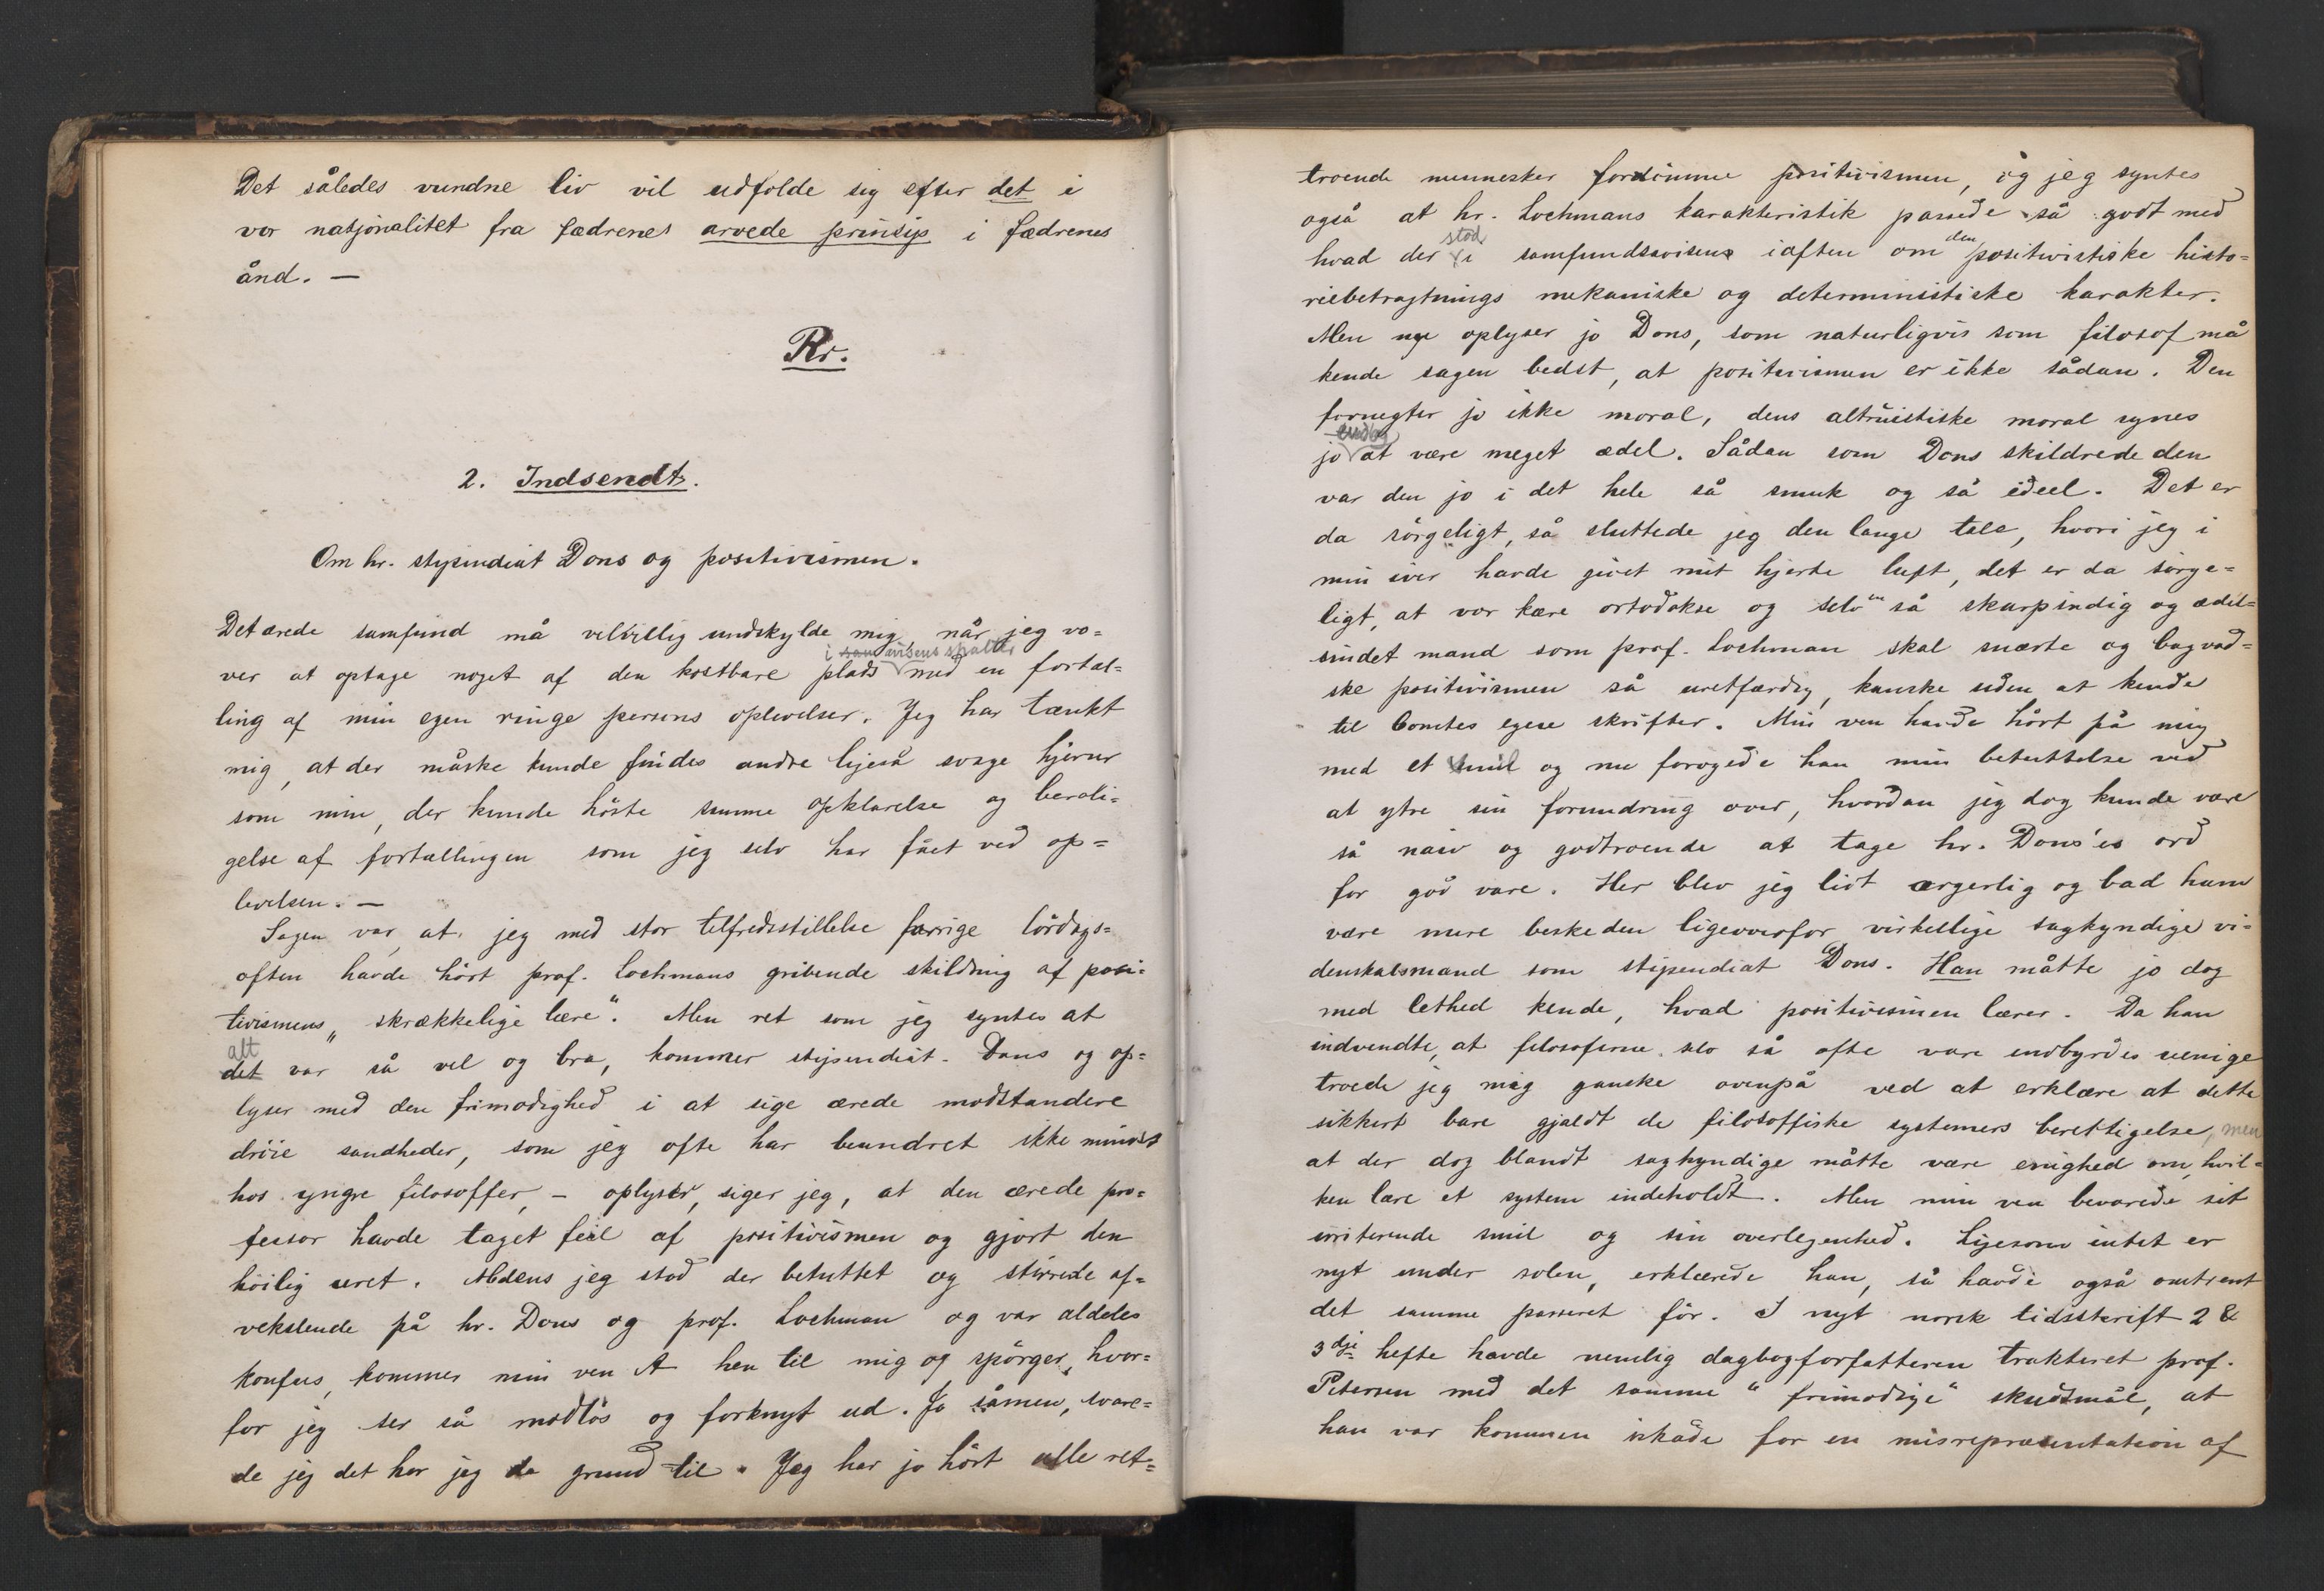 Det således vundne liv vil udfolde sig efter det i
vor natjonalitet fra fædrenes arvede prinsip i fædrenes
ånd. —
Rr.
2. Indsendt.
Om hr. stipendiat Dons og positivismen.
Det ærede samfund må velvillig undskylde mig, når jeg vo=
i avisens spalter
ver at optage noget af den kostbare plads med en fortæl=
ling af min egen ringe persons oplevelser. Jeg har tænkt
mig, at der måske kunde findes andre ligeså svage hjerner
som min, der kunde höste samme opklarelse og beroli=
gelse af fortællingen som jeg selv har fået ved op=
levelsen. —
Sagen var, at jeg med stor tilfredsstillelse forrige lördags=
aften havde hört prof. Lochmans gribende skildring af posi=
tivismens „skrækkelige lære“. Men ret som jeg syntes at
alt
det var så vel og bra, kommer stipendiat Dons og op=
lyser med den frimodighed i at sige ærede modstandere
dröie sandheder, som jeg ofte har beundret ikke mindst
hos yngre filosoffer, – oplyser, siger jeg, at den ærede pro=
fessor havde taget feil af positivismen og gjort den
höilig uret. Medens jeg stod der betuttet og stirrede af=
vekslende på hr. Dons og prof. Lochman og var aldeles
konfus, kommer min ven A hen til mig og spörger, hvor=
for jeg ser så modlös og forknyt ud. Ja såmen, svare=
de jeg det har jeg da grund til. Jeg har jo hört alle ret=
troende mennesker fordömme positivismen, og jeg syntes
også at hr. Lochmans karakteristik passede så godt med
stod den
hvad der i samfundsavisen iaften om positivistiske histo=
riebetragtnings mekaniske og deterministiske karakter.
Men nu oplyser jo Dons, som naturligvis som filosof må
kende sagen bedst, at positivismen er ikke sådan. Den
fornegter jo ikke moral, dens altruistiske moral synes
endog
jo at være meget ædel. Sådan som Dons skildrede den
var den jo i det hele så smuk og så ideel. Det er
da sörgeligt, så sluttede jeg den lange tale, hvori jeg i
min iver havde givet mit hjerte luft, det er da sörge=
ligt, at vor kære ortodokse og selv en så skarpsindig og ædel=
sindet mand som prof. Lochman skal snærte og bagvad=
ske positivismen så uretfærdig, kanske uden at kende
til Comtes egne skrifter. Min ven havde hört på mig
med et smil og nu forögede han min betuttelse ved
at ytre sin forundring over, hvordan jeg dog kunde være
så naiv og godtroende at tage hr. Dons'es ord
for god vare. Her blev jeg lidt ærgerlig og bad ham
være mere beskeden ligeoverfor virkellige sagkyndige vi=
denskabsmænd som stipendiat Dons. Han måtte jo dog
med lethed kende, hvad positivismen lærer. Da han
indvendte, at filosoferne selv så ofte vare indbyrdes uenige
troede jeg mig ganske ovenpå ved at erklære at dette
sikkert bare gjaldt de filosoffiske systemers berettigelse, men
at der dog blandt sagkyndige måtte være enighed om, hvil=
ken lære et system indeholdt. Men min ven bevarede sit
irriterende smil og sin overlegenhed. Ligesom intet er
nyt under solen, erklærede han, så havde også omtrent
det samme passeret för. I nyt norsk tidsskrift 2 &
3dje hefte havde nemlig dagbogforfatteren trakteret prof.
Petersen med det samme “frimodige” skudsmål, at
han var kommen iskade for en misrepræsentation af